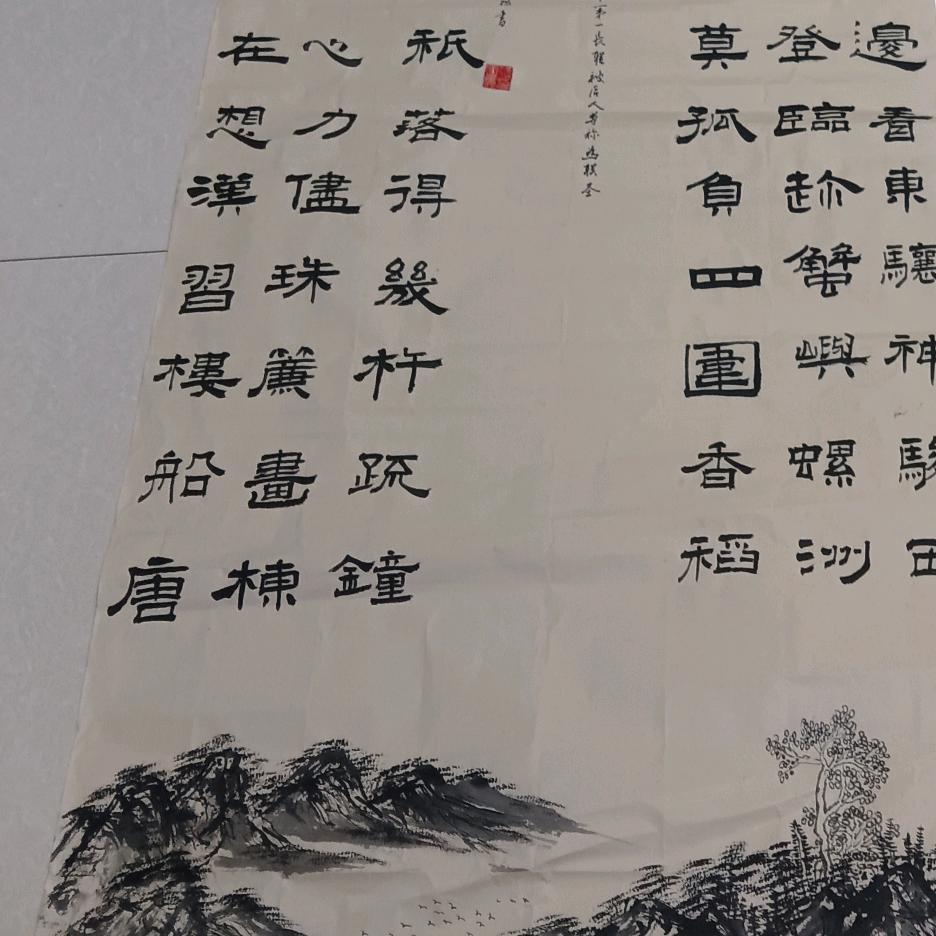 邊看東驤神駿
登臨趁蟹嶼螺洲
莫孤負四圍香稻
第一長联被后人尊称為联圣
書
在想漢習樓船唐
心力儘珠簾畫棟
祇落得幾杵疏鐘